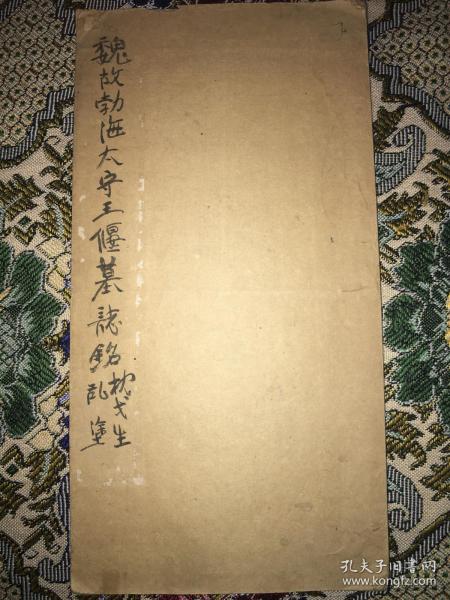 魏故勃海太守王偃墓誌銘
枕戈生
乱塗
孔夫子旧书网
www.kongfz.com